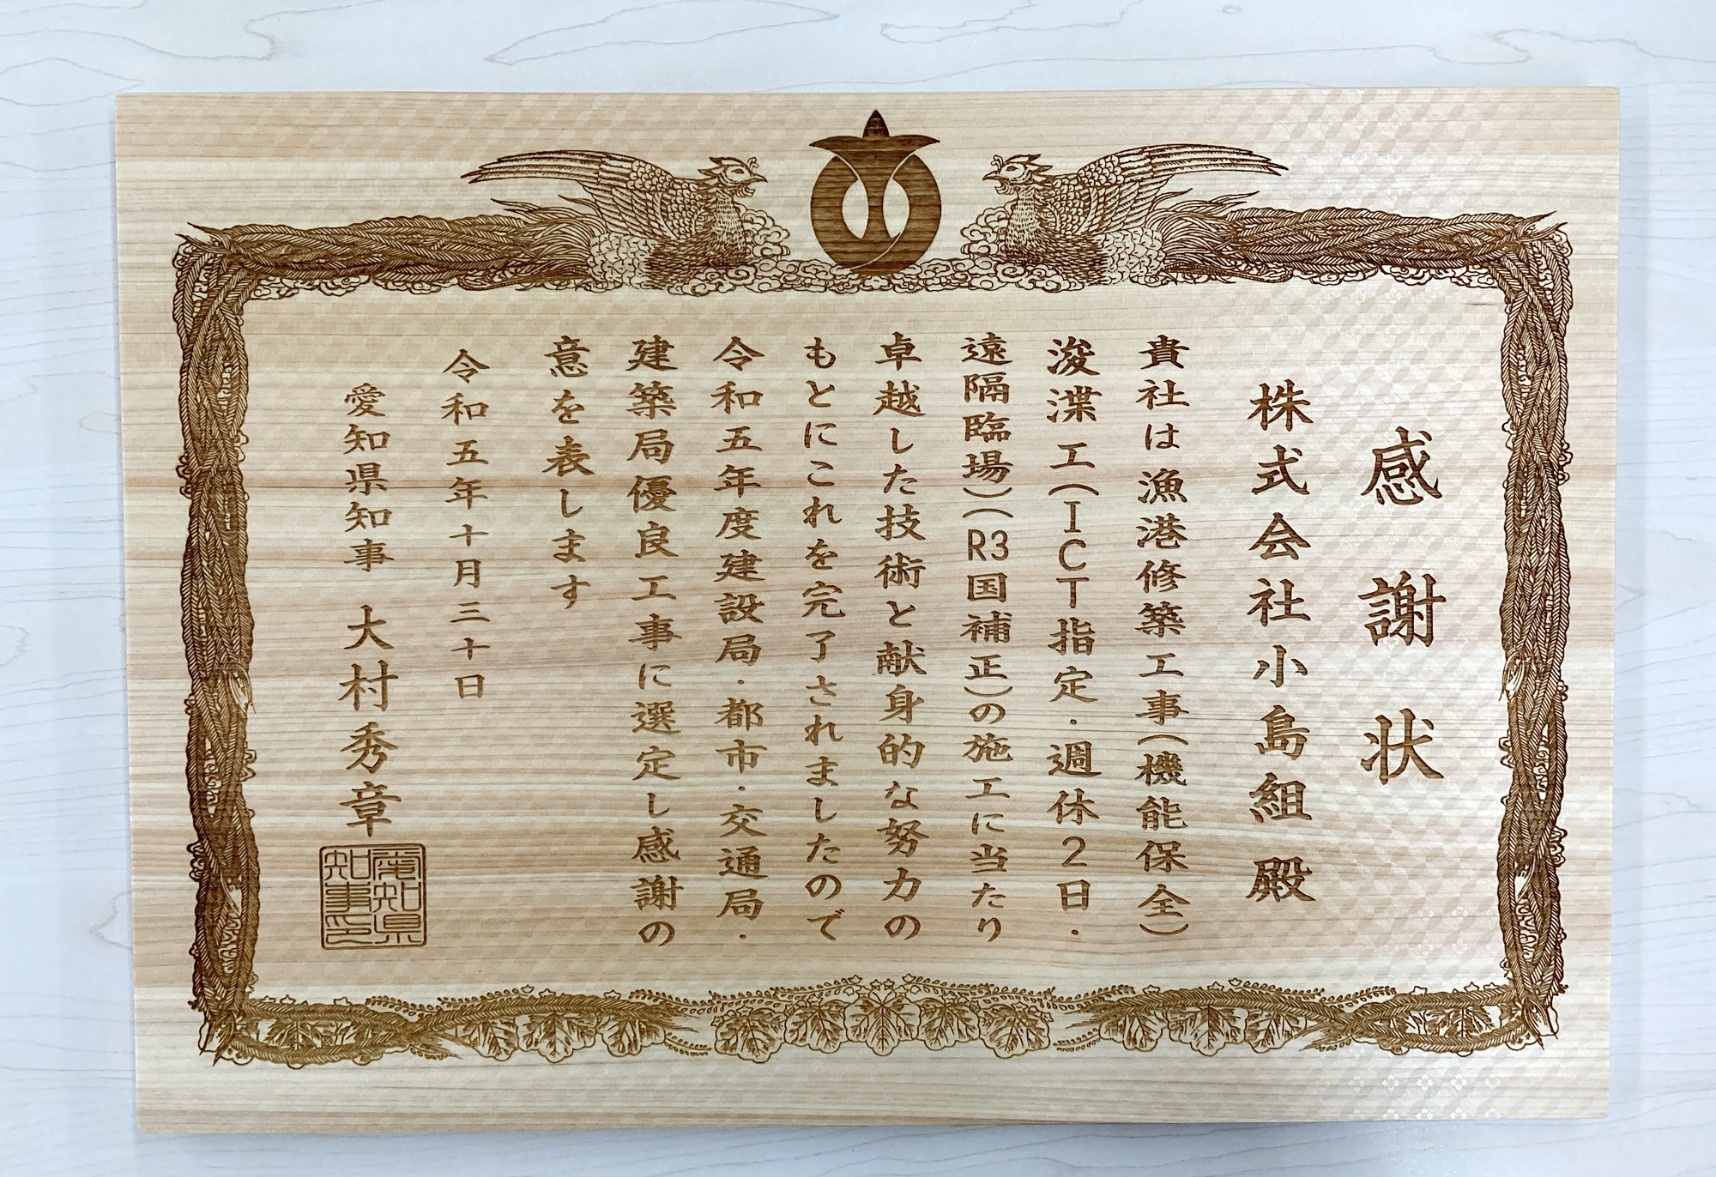 感謝状
株式会社小島組 殿
貴社は漁港修築工事(機能保全)
浚渫工(ICT指定・週休2日・
遠隔臨場)(R3国補正)の施工に当たり
卓越した技術と献身的な努力の
もとにこれを完了されましたので
令和五年度建設局・都市・交通局・
建築局優良工事に選定し感謝の
意を表します
令和五年十月三十日
愛知県知事 大村秀章
愛知県
知事之印